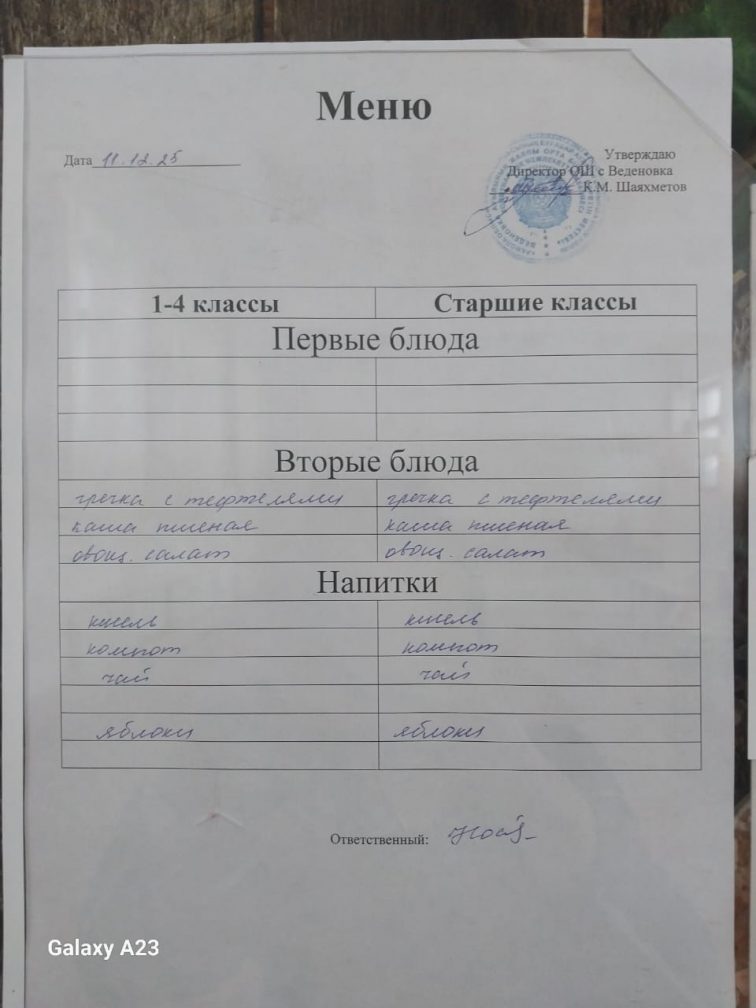 Меню
Дата 11.12.25
Утверждаю
Директор ОШ с Веденовка
К.М. Шаяхметов
1-4 классы Старшие классы
Первые блюда
Вторые блюда
гречка с тефтелями гречка с тефтелями
каша пшеная каша пшеная
овощ. салат овощ. салат
Напитки
кисель кисель
компот компот
чай чай
яблоки яблоки
Ответственный:
Galaxy A23